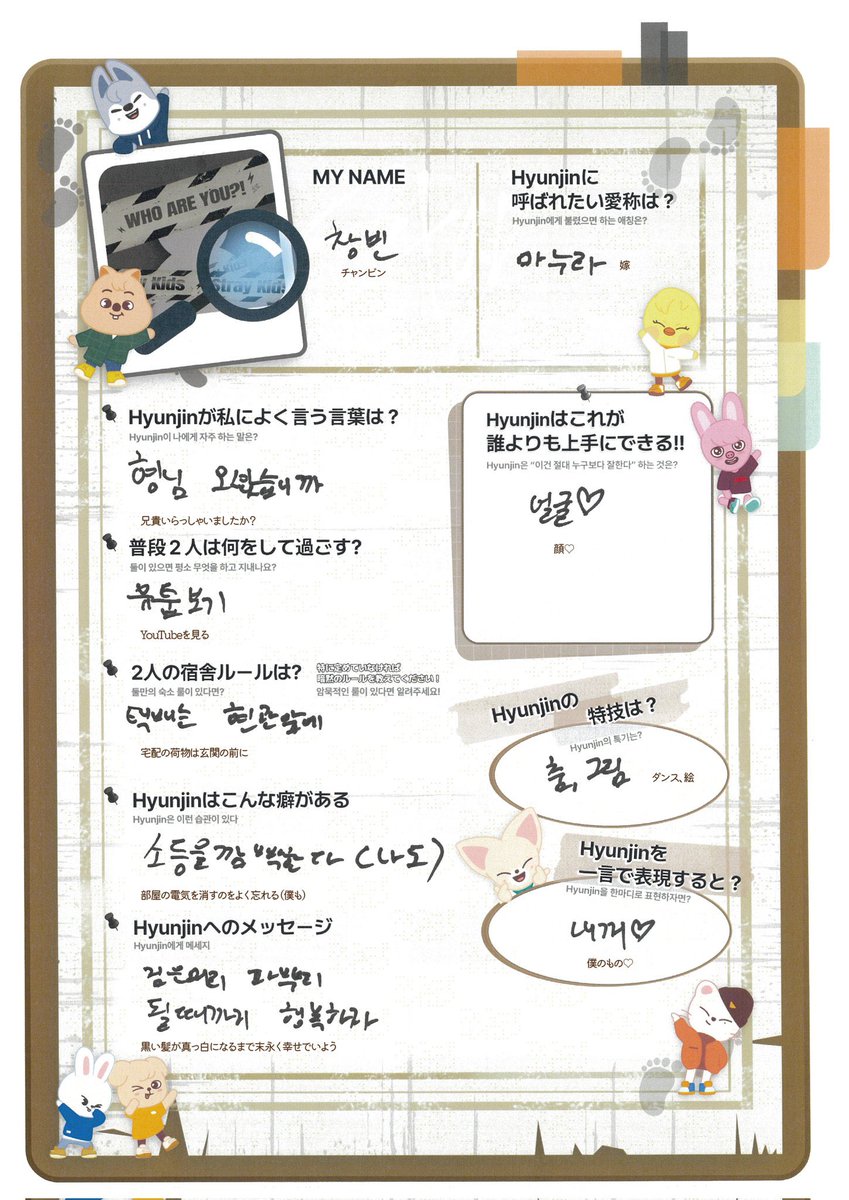 WHO ARE YOU?!
Stray Kids
MY NAME
창빈
チャンビン
Hyunjinに
呼ばれたい愛称は？
Hyunjin에게 불렸으면 하는 애칭은?
마누라 嫁
Hyunjinが私によく言う言葉は？
Hyunjin이 나에게 자주 하는 말은?
형님 오셨습니까
兄貴いらっしゃいましたか？
普段２人は何をして過ごす？
둘이 있으면 평소 무엇을 하고 지내나요?
유튭보기
YouTubeを見る
2人の宿舎ルールは？
特に定めていなければ
暗黙のルールを教えてください！
둘만의 숙소 룰이 있다면?
암묵적인 룰이 있다면 알려주세요!
택배는 현관앞에
宅配の荷物は玄関の前に
Hyunjinはこんな癖がある
Hyunjin은 이런 습관이 있다
소등을 깜빡한다 (나도)
部屋の電気を消すのをよく忘れる（僕も）
Hyunjinへのメッセージ
Hyunjin에게 메세지
검은머리 파뿌리
될때까지 행복하자
黒い髪が真っ白になるまで末永く幸せでいよう
Hyunjinはこれが
誰よりも上手にできる!!
Hyunjin은 “이건 절대 누구보다 잘한다” 하는 것은?
얼굴♡
顔♡
Hyunjinの 特技は？
Hyunjin의 특기는?
춤, 그림 ダンス、絵
Hyunjinを
一言で表現すると？
Hyunjin을 한마디로 표현하자면?
내꺼♡
僕のもの♡